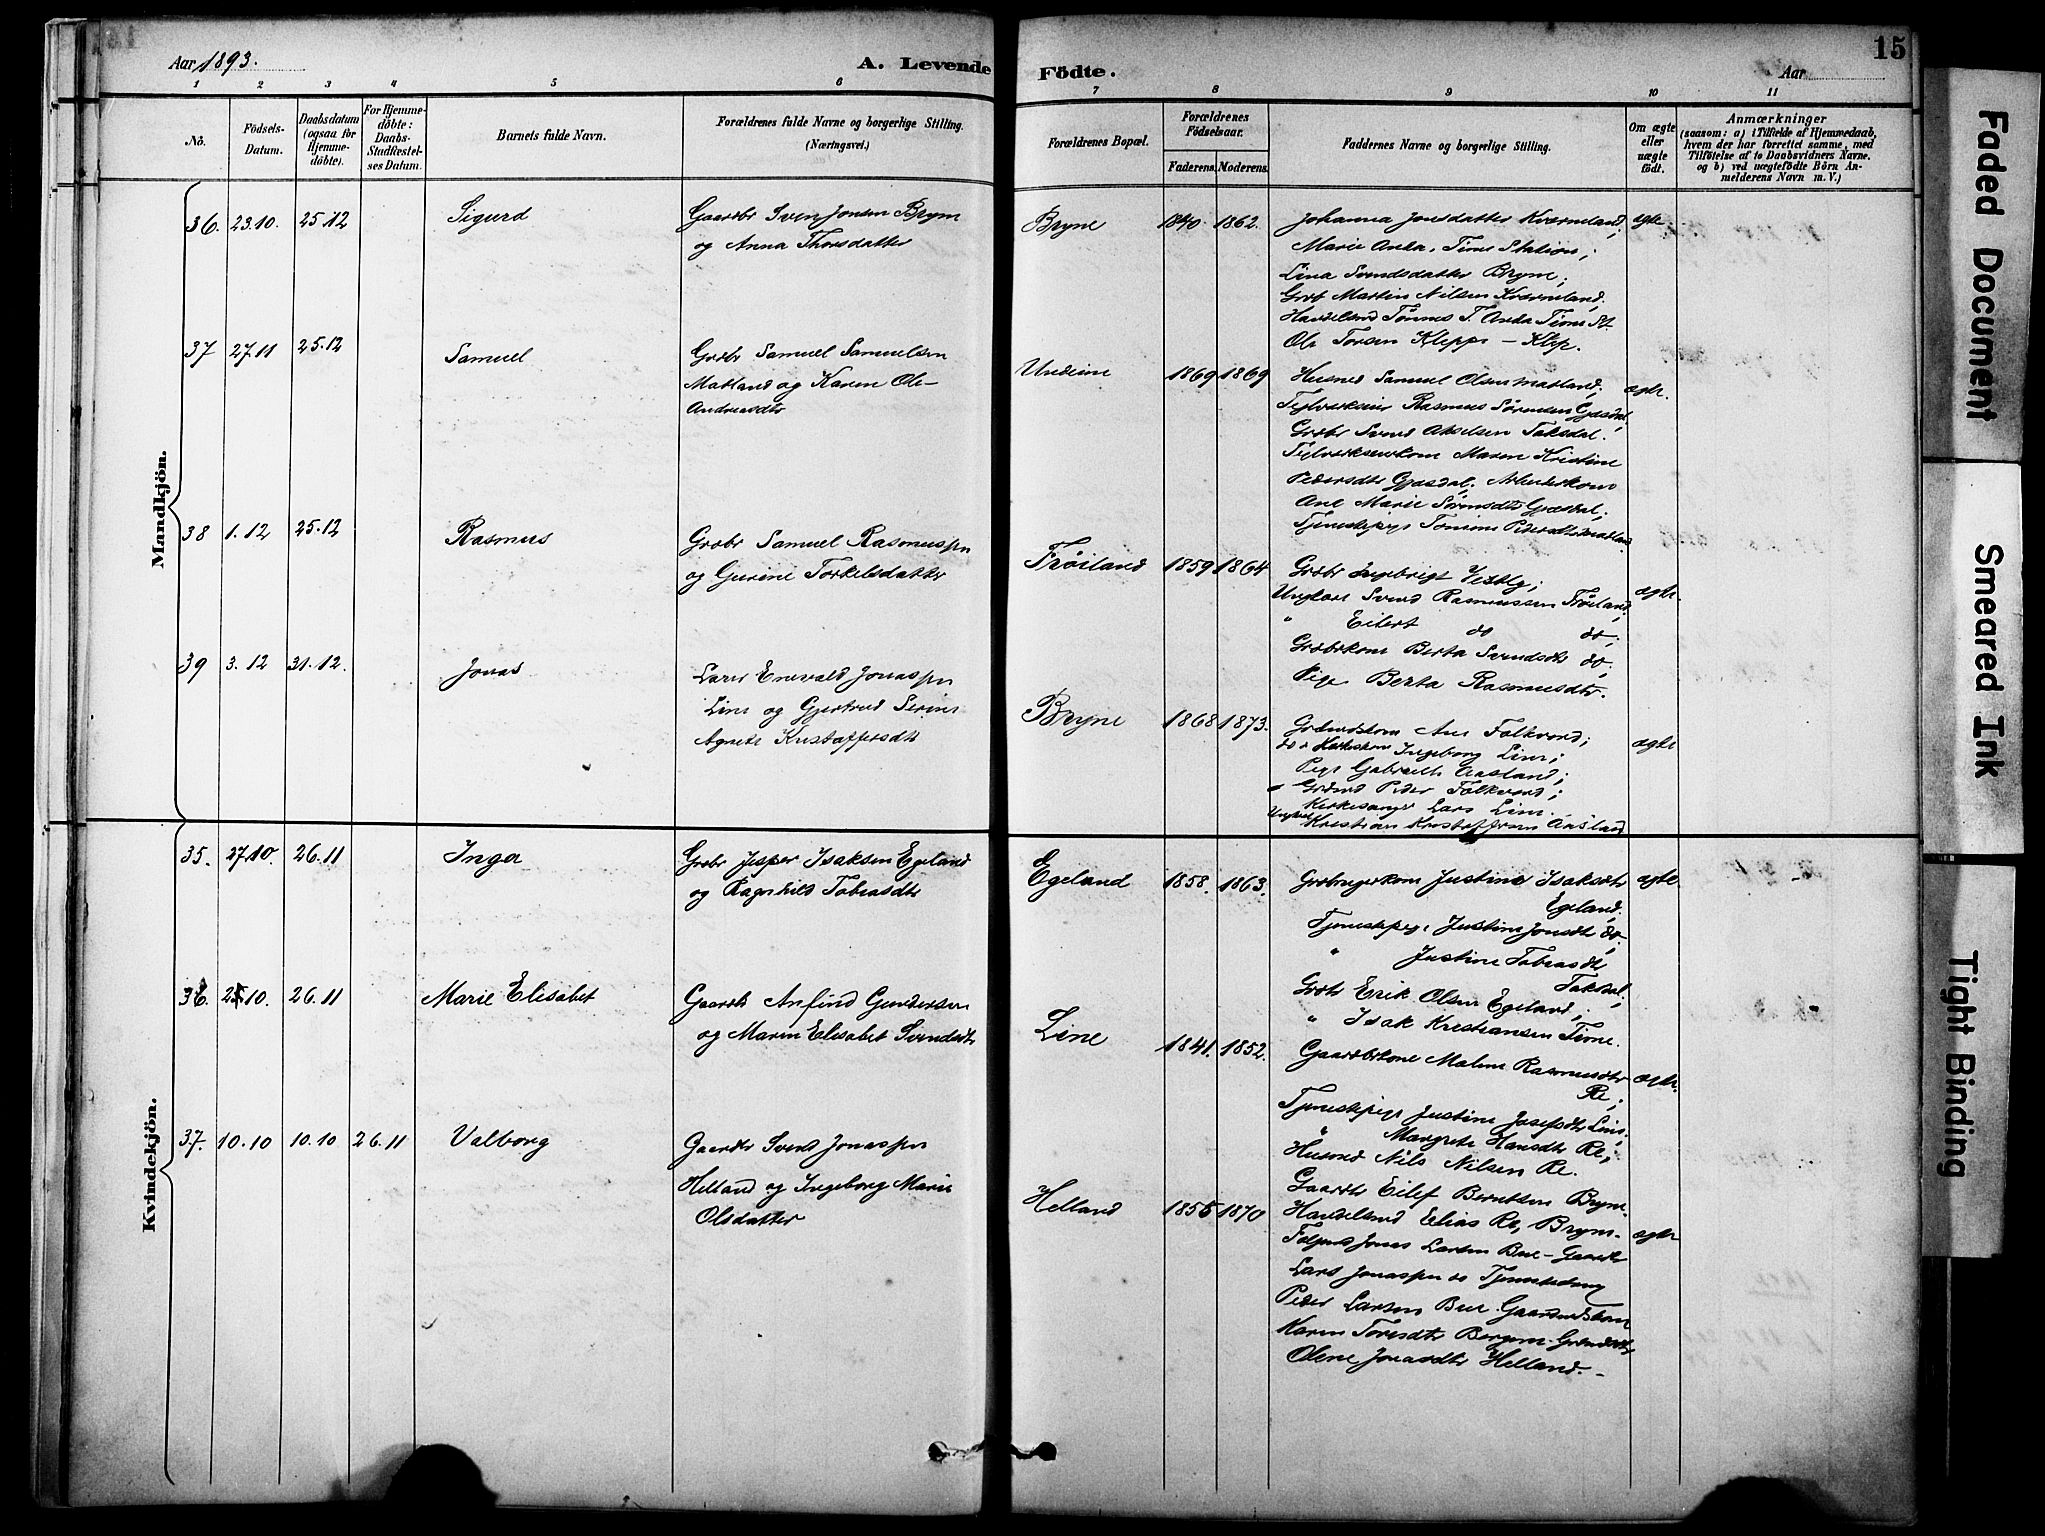 Aar 1893.
A. Levende
Födte.
Aar
15
1 2 3 4 5 6 7 8 9 10 11
No.
Födsels-Datum.
Daabsdatum (ogsaa for Hjemmedöbte).
For Hjemmedöbte: Daabs-Stadfæstelses Datum.
Barnets fulde Navn.
Forældrenes fulde Navne og borgerlige Stilling.
(Næringsvei.)
Forældrenes Bopæl.
Forældrenes Födselsaar.
Faderens. Moderens.
Faddernes Navne og borgerlige Stilling.
Om ægte eller uægte födt.
Anmærkninger
(saasom: a) i Tilfælde af Hjemmedaab, hvem der har forrettet samme, med Tilföielse af to Daabsvidners Navne. og b) ved uægtefödte Börn Anmelderens Navn m. V.)
Mandkjön.
36. 23.10. 25.12 Sigurd
Gaardbr Sven Jonsen Bryne
og Anna Thorsdatter
Bryne 1840. 1862.
Johanna Jonsdatter Kværneland,
Marie Arda, Time Station;
Lina Svendsdatter Bryne;
Grbr Martin Nilsen Kværneland.
Handelsmd Tönnes T. Arda Time St
Ole Torsen Kleppe - Klep.
ægte
37 27.11 25.12 Samuel
Grdbr Samuel Samuelsen
Matland og Karen Ole-
Andreasdtr
Undeim 1869 1869
Husmd Samuel Olsen Matland,
Rasmus Sörensen Gjesdal,
Grdbr Svend Akselsen Taksdal.
Maren Kristine
Pedersdtr Gjesdal, Arbeiderkone
Ane Marie Sörensdtr Gjesdal;
Tjenestepige Tomine Pedersdtr Matland
ægte.
38 1.12 25.12 Rasmus
Grdbr Samuel Rasmussen
og Gurine Torkelsdatter
Fröiland 1859 1864
Grdbr Ingebrigt Vestly;
Ungkarl Svend Rasmussen Fröiland,
" Eilert do do,
Grdbrkone Berta Svendsdtr do,
Pige Berta Rasmusdtr.
ægte.
39 3.12 31.12. Jonas
Lærer Enevald Jonassen
Line og Gjertrud Serine
Agnete Kristoffersdtr
Bryne 1868 1873.
Ane Folkvord;
Ingeborg Line;
Pige Gabrielle Aasland;
Grdmd Peder Folkvord;
Kirkesanger Lars Line.
Ungkarl Kristian Kristoffersen Aasland
ægte
Kvindekjön.
35. 27.10. 26.11 Inga
Grdbr Jesper Isaksen Egeland
og Ragnhild Tobiasdtr
Egeland 1858. 1863.
Grdbrugerkone Justine Isaksdtr
Egeland,
Tjenestepige Justine Jonsdtr do,
" Justine Tobiasdtr
Taksdal,
Grdbr Erik Olsen Egeland,
" Isak Kristiansen Time.
ægte
36. 25.10. 26.11 Marie Elisabet
Gaardbr Anfind Gundersen
og Maren Elisabet Svendsdtr
Line 1841. 1852.
Gaardbrkone Malene Rasmusdtr
Re;
Tjenestepige Justine Josefsdtr Line,
" Margrete Hansdtr Re,
Husmd Nils Nilsen Re.
Gaardbr Eilef Berntsen Bryne.
ægte.
37. 10.10 10.10 26.11 Valborg
Gaardbr Svend Jonassen
Helland og Ingeborg Marie
Olsdatter
Helland 1855 1870
Handelsmd Elias Re, Bryne-
Jonas Larsen Bue - Gaardbr
Lars Jonassen do Tjenestedreng
Peder Larsen Bue. Gaardmdskone
Karen Toresdtr
Olene Jonasdtr Helland. -
ægte
Faded Document
Smeared Ink
Tight Binding